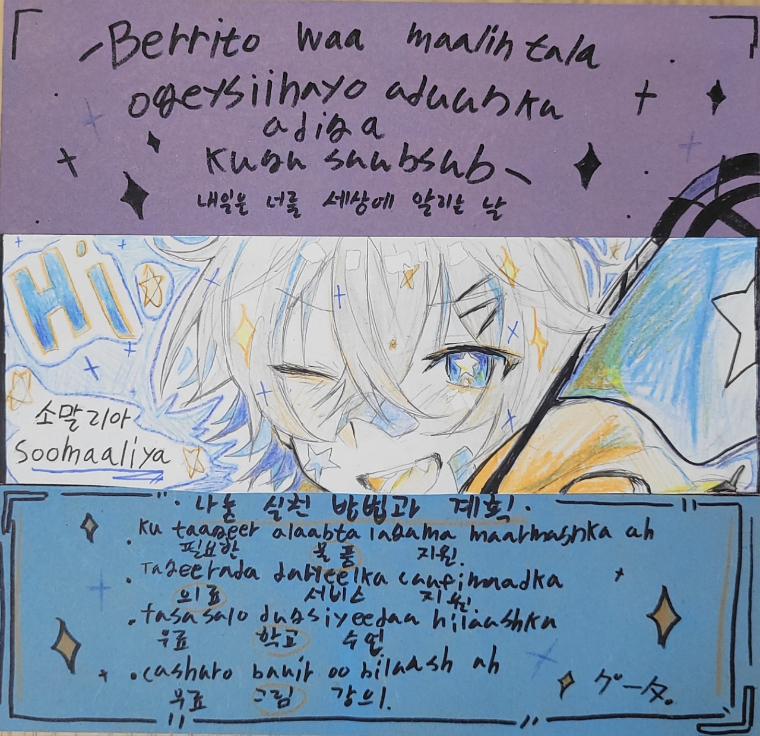 ~Berrito waa maalin tala
ogeysiihayo aduunka
adiga
kugu saabsab~
내일은 너를 세상에 알리는 날
Hi
소말리아
Soomaaliya
·나눔 실천 방법과 계획·
·Ku taageer alaabta lagama maarmashka ah
필요한 물품 지원.
·Tageerada daryeelka caafimaadka
의료 서비스 지원.
·fasasalo dugsiyeedaa bilaashka
무료 학교 수업
·casharo banir oo bilaash ah
무료 그림 강의.
ゲータ。